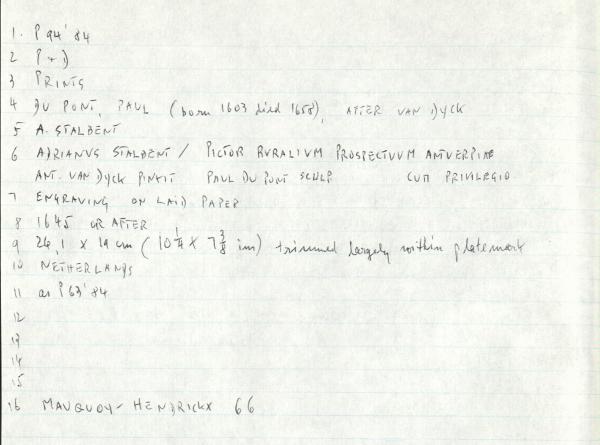 1. P94'84
2 P+D
3 PRINTS
4 DU PONT, PAUL (born 1603 died 1658), AFTER VAN DYCK
5 A. STALBENT
6 ADRIANUS STALBENT / PICTOR RURALIUM PROSPECTUUM ANTVERPIAE
ANT. VAN DYCK PINXIT PAUL DU PONT SCULP CUM PRIVILEGIO
7 ENGRAVING ON LAID PAPER
8 1645 OR AFTER
9 26,1 x 19 cm (10 1/4 x 7 3/8 in) trimmed largely within platemark
10 NETHERLANDS
11 as P63'84
12
13
14
15
16 MAUQUOY-HENDRICKX 66